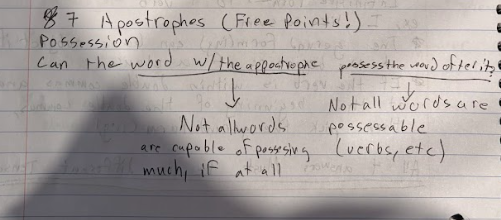 8 7 Apostrophes (Free Points!)
Possession
Can the word w/the appostrophe possess the word after it?
Not all words
are capable of possesing
much, if at all
Not all words are
possessable
(verbs, etc)